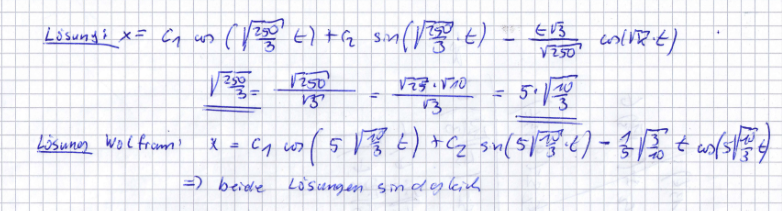 Lösung: x = C₁ cos (√(250/3) t) + C₂ sin(√(250/3) · t) − t√3/√250 cos(√ · t)
√(250/3) = √250/√3 = √25 · √10/√3 = 5 · √(10/3)
Lösung Wolfram: x = C₁ cos (5 √(10/3) t) + C₂ sin(5√(10/3) · t) − 1/5 √(3/10) t cos(5√(10/3) t)
⇒ beide Lösungen sind gleich